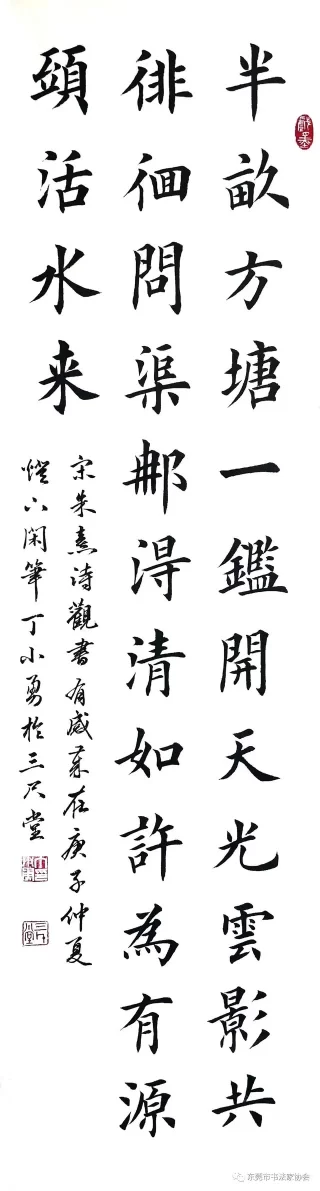 半畝方塘一鑑開天光雲影共
徘徊問渠那淂清如許為有源
頭活水来
宋朱熹诗觀書有感歲在庚子仲夏
燈下閑筆丁小勇於三尺堂
三尺堂
东莞市书法家协会